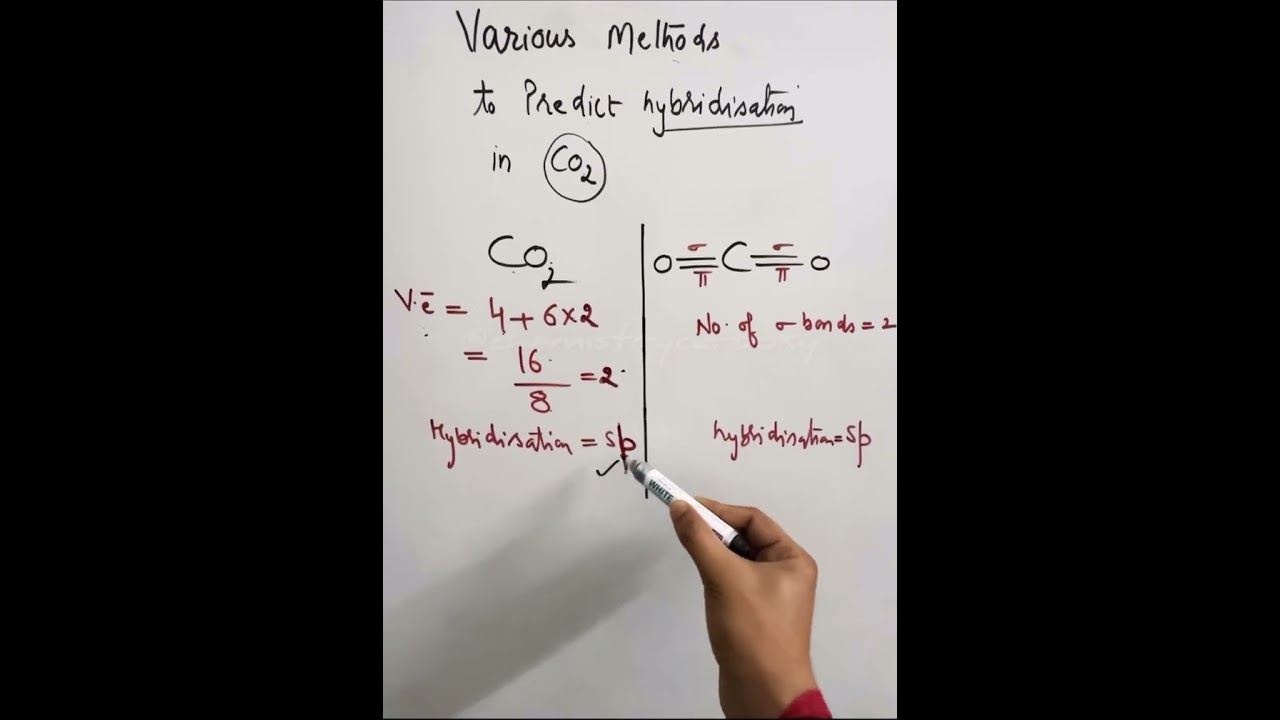 Various Methods
to Predict hybridisation
in CO2
CO2
V.ē = 4+6×2
= 16/8 =2
Hybridisation = sp
O=C=O
σ σ
π π
No. of σ bonds = 2
hybridisation=sp
WHITE